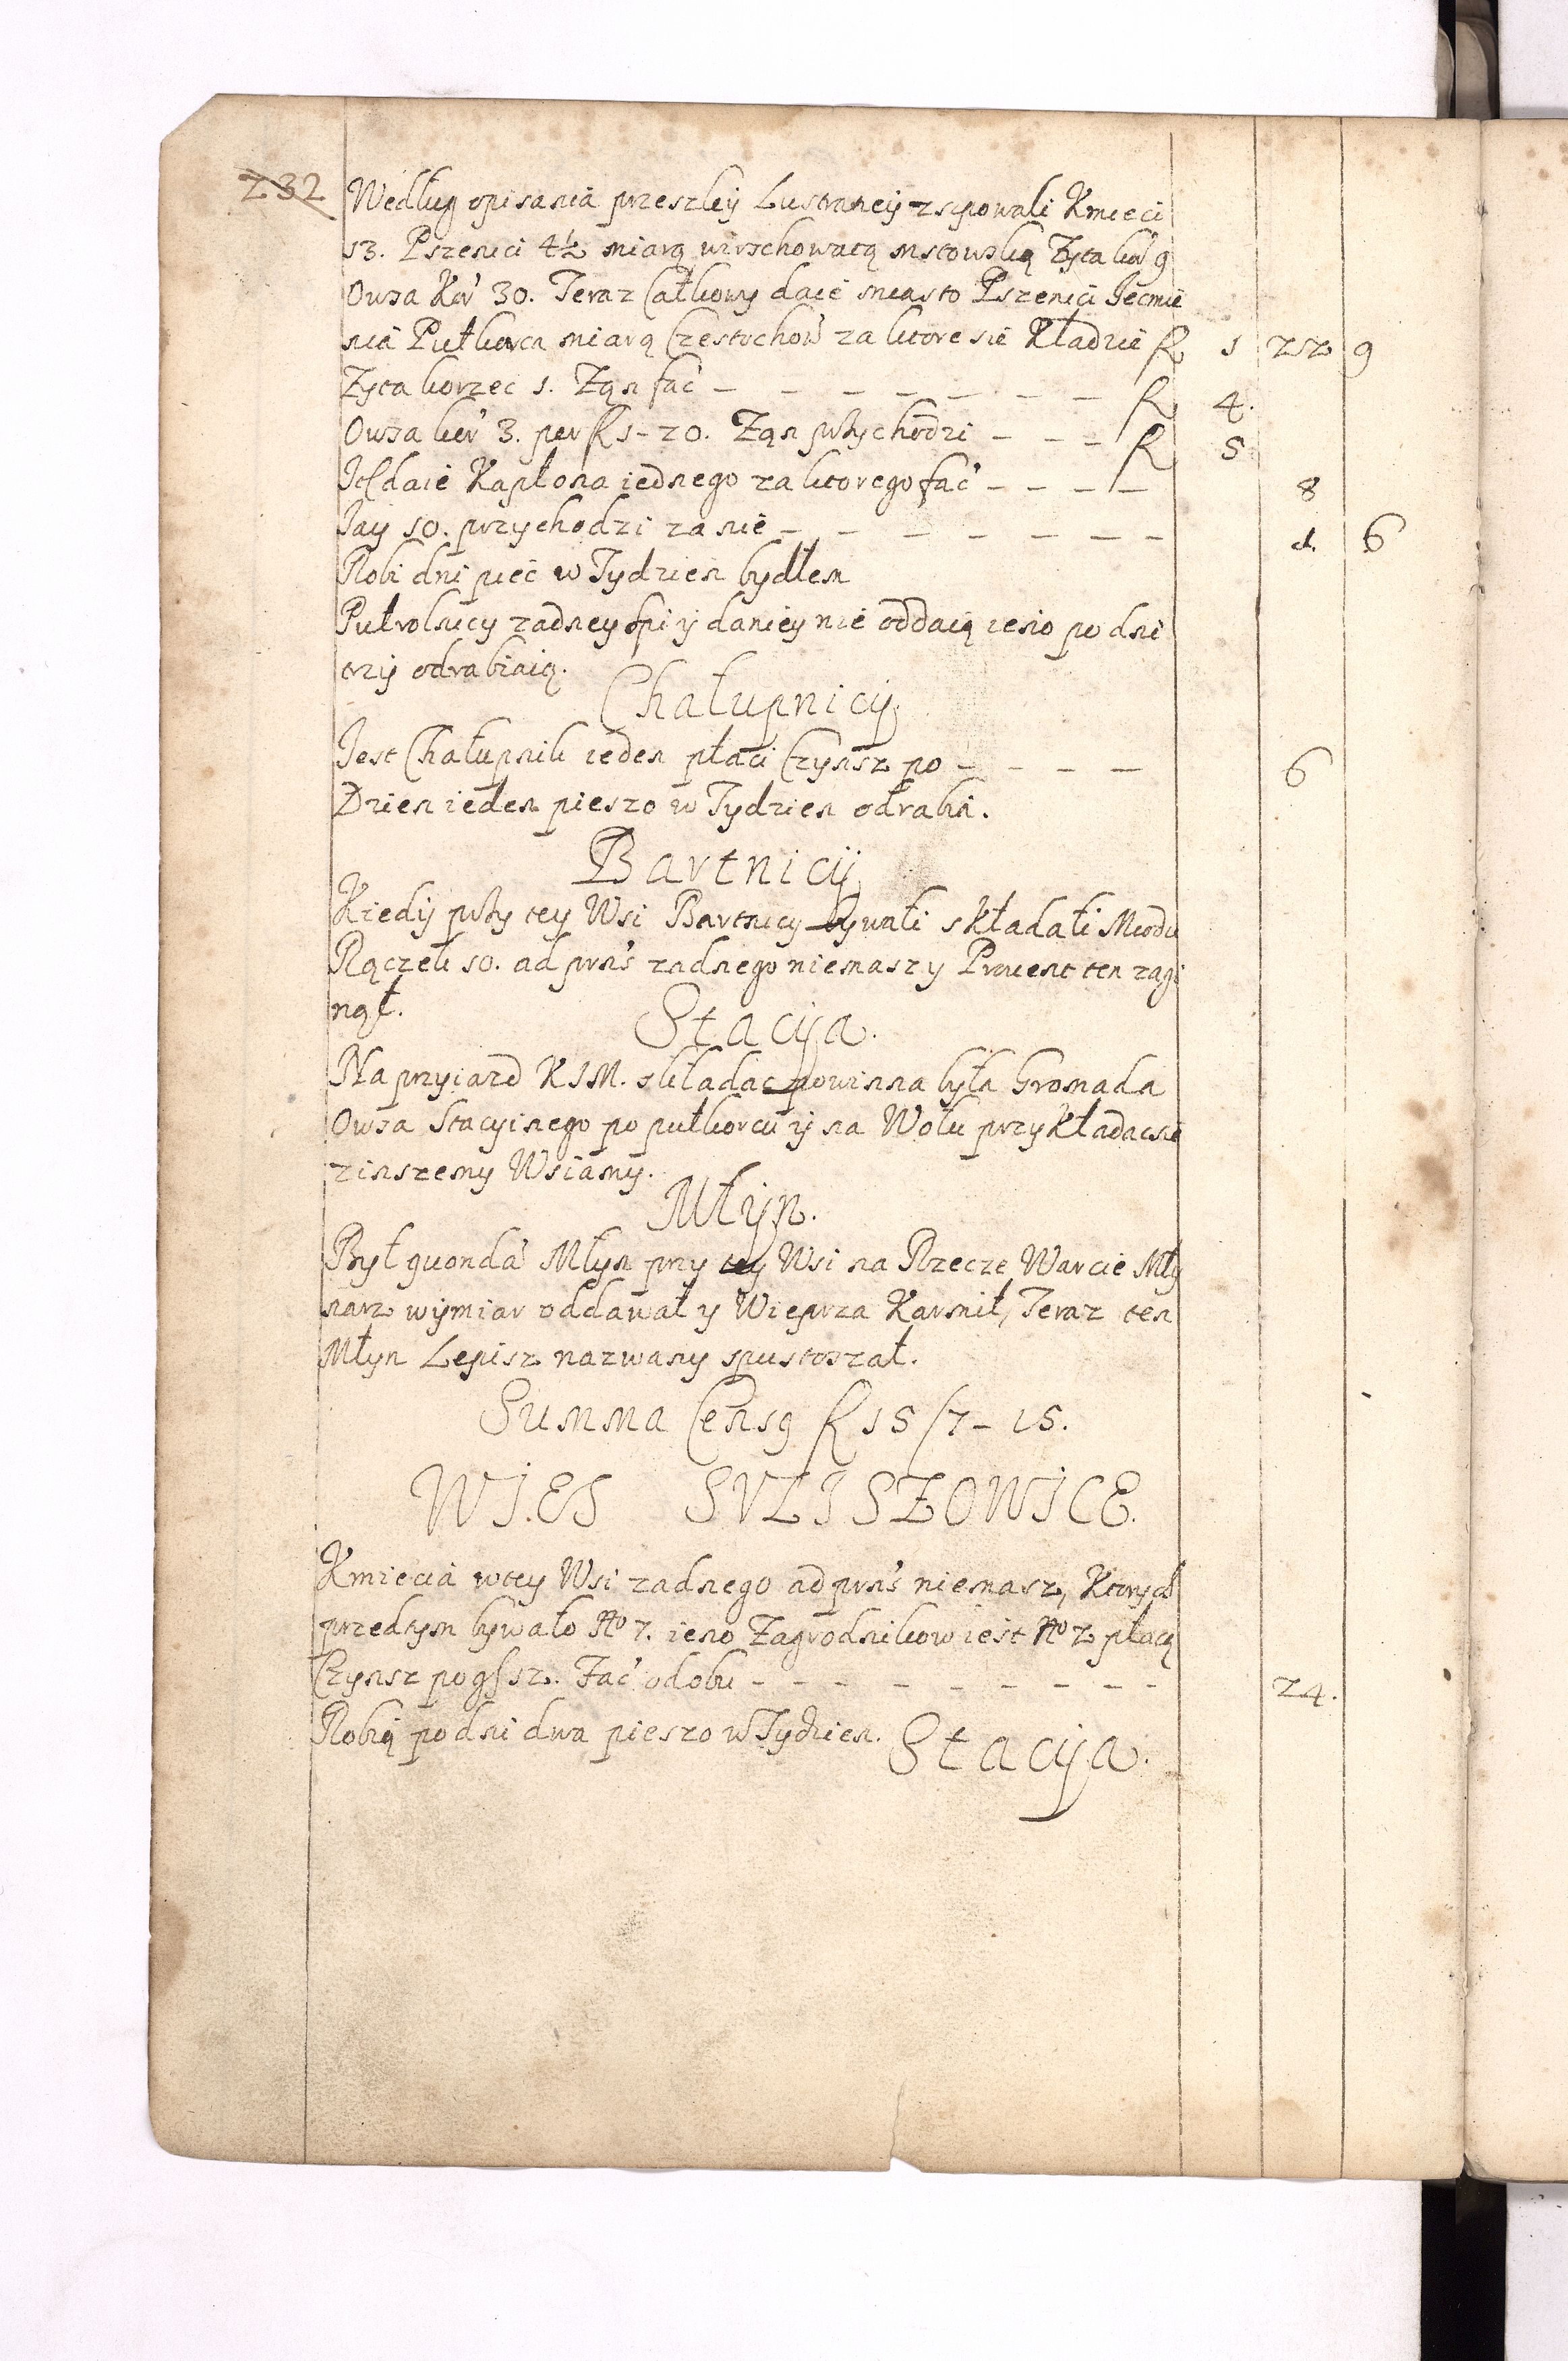 232
Według opisania przeszłey Lustracÿ zsypowali Kmieci
13. Pszenici 4½ miarą wirzchowatą mstowską Zyta kor̃ 9
Owsa Kor̃ 30. Teraz Całkowy daie miasto Pszenici Ięcmie
nia Pułkorca miarą Częstochow̃ za ktore sie Kładzie fl 1 22 9
Zyta korzec 1. Ząn fać fl 4.
Owsa kor̃ 3. per fl 1-20. Ząn przychodzi fl 5
It daie Kapłona iednego za ktorego fać 8
Iay 10. przychodzi za nie d. 6
Robi dni pięć w Tydzien bydłem
Pułrolnicy zadney spi ÿ daniey nie oddaią ieno po dni
trzÿ odrabiaią.
Chałupnicÿ
Jest Chałupnik ieden płaci Czynsz po 6
Dzien ieden pieszo w Tydzien odrabia.
Bartnicÿ
Kiedÿ przy tey Wsi Bartnicy bywali składali Miodu
Rączek 10. ad prñs zadnego niemasz y Prowent ten zagi
nął.
Stacÿa.
Na przyiazd KJM. składac powinna była Gromada
Owsa Stacyinego po pułkorcu ÿ na Wołu przykładac sie
z inszemy Wsiamy.
Młÿn.
Był quondã Młyn przy tey Wsi na Rzecze Warcie Mły
narz wÿmiar oddawał y Wieprza Karmił, Teraz ten
Młyn Lepisz nazwany spustoszał.
Summa Censq fl 15/7-15.
WJ.ES SVLJSZOWJCE.
Kmiecia w tey Wsi zadnego ad prñs niemasz, Ktorych
przedtym bywało No 7. ieno Zagrodnikow iest No 2 płacą
Czynsz po g/12. Fać odobu 24.
Robią po dni dwa pieszo w Tydzien. Stacÿa.